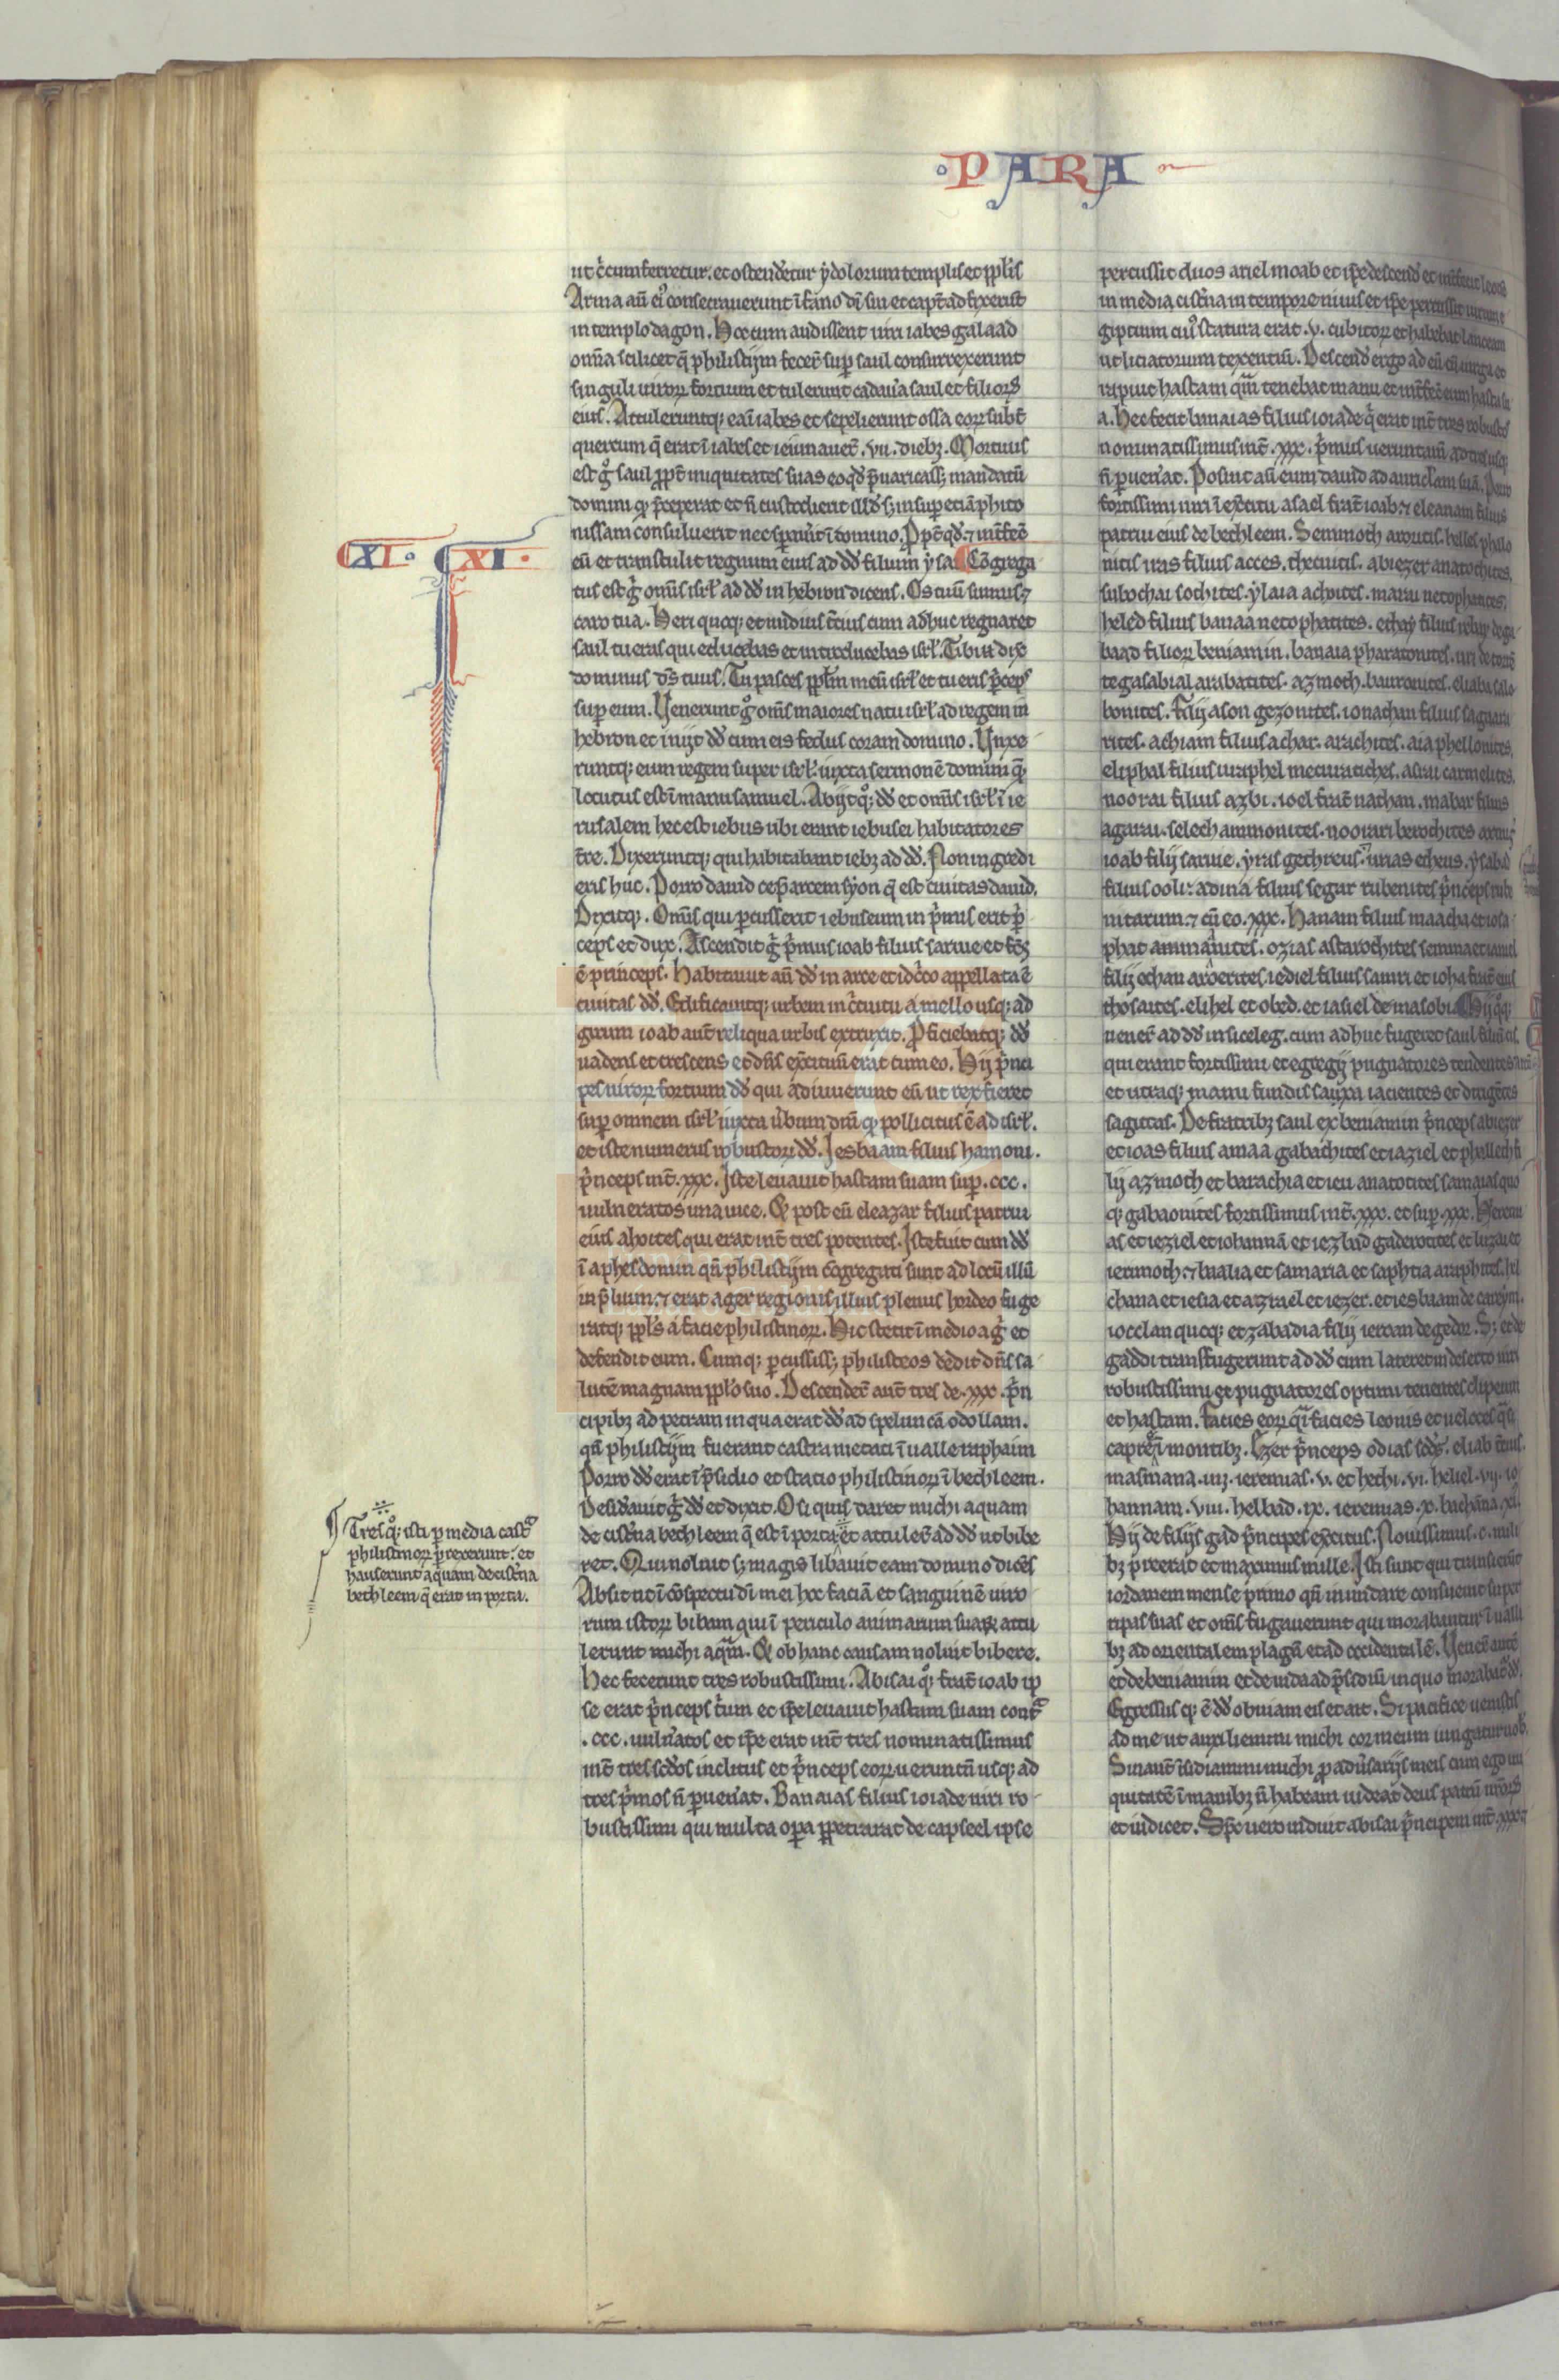 PARA
ut c̃cumferretur. et ostend̃etur ydolorum templis et pp̃lis
Arma aũ ei᷒ consecrauerunt ĩ fano dĩ sui et cap̃t ad fixerũt
in templo dagon. Hoc cum audissent uiri iabes galaad
om̃ia scilicet q̃ philistijm fecer̃t sup̃ saul consurrexerunt
singuli uiroꝝ fortium et tulerunt cadau̾a saul et filioꝝ
eius. Attuleruntq; ea ĩ iabes et sepelierunt ossa eoꝝ subt̾
quercum q̃ erat ĩ iabes et ieiunauer̃t .vii. dieb;. Mortuus
est g̊ saul ꝓpt̾ iniquitates suas eo qd̾ p̃uaricass; mandatũ
domini qd̾ p̃ceperat et ñ custodierit illd̾ s; insuper etiã phito
nissam consuluerit nec sp̃auit ĩ domino. Ꝓpt̾ qd̾ ⁊ int̾fec̃
XI. XI.
eũ et transtulit regnum eius ad dd̾ filium ysai. Cõgrega
tus est g̊ om̃is isrl̾ ad dd̾ in hebron dicens. Os tuũ sumus ⁊
caro tua. Heri quoq; et nudius t̾cius cum adhuc regnaret
saul tu eras qui educebas et introducebas isrl̾. Tibi ẽ dix̃
dominus ds̃ tuus. Tu pasces pp̃lm meũ isrl̾ et tu eris p̃nceps
sup̃ eum. Uenerunt g̊ om̃s maiores natu isrl̾ ad regem in
hebron et inijt dd̾ cum eis fedus coram domino. Unxe
runtq; eum regem super isrl̾ iuxta sermonẽ domini q̃
locutus est ĩ manu samuel. Abijt q̊; dd̾ et om̃is isrl̾ ĩ ie
rusalem hec est iebus ubi erant iebusei habitatores
t̾re. Dixeruntq; qui habitabant ieb; ad dd̾. Non ingredi
eris huc. Porro dauid cep̃ arcem syon q̃ est ciuitas dauid.
Dixitq;. Om̃is qui ꝑcusserit iebuseum in p̃mis erit p̃
ceps et dux. Ascendit g̊ p̃mus ioab filius saruie et fc̃s
ẽ princeps. Habitauit aũ dd̾ in arce et idc̃co appellata ẽ
ciuitas dd̾. Edificauitq; urbem in c̃cuitu a mello usq; ad
girum ioab aut̾ reliqua urbis extruxit. Ꝓficiebatq; dd̾
uadens et crescens et dñs exc̾ituũ erat cum eo. Hij p̃nci
pes uiroꝝ fortium dd̾ qui adiuuerunt eũ ut rex fieret
sup̃ omnem isrl̾ iuxta u̾bum dñi qd̾ pollicitus ẽ ad isrl̾.
et iste numerus robustoꝝ dd̾. Jesbaam filius hamoni.
p̃nceps int̾ .xxx. Iste leuauit hastam suam sup̃ .ccc.
uulneratos una uice. Et post eũ eleazar filius patrui
eius ahoites qui erat int̾ tres potentes. Iste fuit cum dd̾
ĩ aphesdomin qñ philistijm cõgregati sunt ad locũ illũ
in p̃lium. ⁊ erat ager regionis illius plenus hordeo fuge
ratq; pp̃ls a facie philistinoꝝ. Hic stetit ĩ medio ag̊ et
defendit eum. Cumq; ꝑcussiss; philisteos dedit dñs sa
lutẽ magnam pp̃lo suo. Descender̃t aut̾ tres de .xxx. p̃n
cipib; ad petram in qua erat dd̾ ad speluncã odollam.
qñ philistijm fuerant castra metati ĩ ualle raphaim
Porro dd̾ erat ĩ p̃sidio et statio philistinoꝝ ĩ bethleem.
Desid̾auit g̊ dd̾ et dixit. O si quis daret michi aquam
Tres q̊; isti ꝑ media cast̾a
philistinoꝝ p̃rexerunt: et
hauserunt aquam de cist̾na
bethleem q̃ erat in porta.
de cist̾na bethleem q̃ est ĩ porta et attuler̃t ad dd̾ ut bibe
ret. Qui noluit s; magis libauit eam domino dicẽs
Absit ut ĩ cõspectu dĩ mei hoc faciã et sanguinẽ uiro
rum istoꝝ bibam qui ĩ periculo animarum suaꝝ attu
lerunt michi aqᷓm. Et ob hanc causam noluit bibere.
Hec fecerunt tres robustissimi. Abisai q̊; frat̾ ioab ip
se erat p̃nceps t̾um et ip̃e leuauit hastam suam cont̾a
.ccc. uuln̾atos et ip̃e erat int̾ tres nominatissimus
int̾ tres sc̾dos inclitus et p̃nceps eoꝝ ueruntñ usq; ad
tres p̃mos ñ ꝑuen̾at. Banaias filius ioiade uiri ro
bustissimi qui multa oꝑa ꝑpetrarat de capseel ipse
percussit duos ariel moab et ip̃e descend̾ et int̾fecit leonẽ
in media cist̾na in tempore niuis et ip̃e percussit uirum e
giptium cui᷒ statura erat .v. cubitoꝝ et habebat lanceam
ut liciatorium texentiũ. Descend̾ ergo ad eũ cũ uirga et
rapuit hastam quᷓm tenebat manu et int̾fec̃ eum hasta su
a. Hec fecit banaias filius ioiade q̃ erat int̾ tres robustos
nominatissimus int̾ .xxx. p̃mus ueruntam̃ ad tres usq;
ñ ꝑuen̾at. Posuit aũ eum dauid ad auriclam suã. Porro
fortissimi uiri ĩ exc̾itu asael frat̾ ioab. ⁊ eleanam filius
patrui eius de bethleem. Semmoth aroutis. helles phalo
nitis iras filius acces. thecuitis. abiezer anatothites.
subochai sochites. ylaia achoites. marai netophanites.
heled filius banaa netophatites. ethay filius rebay de ga
baad filioꝝ beniamin. banaia pharatonites. uri de torrẽ
te gasabial arabatites. azmoth. bauronites. eliaba salo
bonites. filij ason gezonites. ionathan filius saguani
rites. achiam filius achar. arachites. aia phellonites.
eliphal filius uraphel mecuratiches. asrai carmelites.
noorai filius azbi. ioel frat̾ nathan. mabar filius
agarai. selech ammonites. noorari berothites armig̾
ioab filij saruie. yras gethreus. urias etheus. ysabad
filius ooli: adina filius segur rubenites p̃nceps rube
nitarum. ⁊ cũ eo .xxx. Hanam filius maacha et iosa
phat ammanites. ozias astarothites semma et iamel
filij echan aroerites. iediel filius samri et ioha frat̾ eius
thosaites. elihel et obed. et iasiel de masobia. Hij q̊;
uener̃t ad dd̾ in siceleg. cum adhuc fugeret saul filiũ cis.
qui erant fortissimi et egregij pugnatores tendentes arcũ
et utraq; manu fundis saxa iacientes et dirigẽtes
sagittas. De fratrib; saul ex beniamin p̃nceps abiezer
et ioas filius amaa gabathites et iaziel et phallech fi
lij azmoth et barachia et ieu anatotites samaias quo
q; gabaonites fortissimus int̾ .xxx. et sup̃ .xxx. Ieremi
as et ieziel et iohannã et iezbad gaderotites et luzai et
ierimoth. ⁊ bralia et samaria et saphtia araphites. hel
chana et iesia et azrael et iezer. et iesbaam de careym.
ioellan quoq; et zabadia filij ieroan de gedor. S; et de
gaddi transfugerunt ad dd̾ cum lateret in deserto uiri
robustissimi et pugnatores optimi tenentes clipeum
et hastam. facies eoꝝ qᷓi facies leonis et ueloces qᷓi
capreę ĩ montib;. Ezer p̃nceps odias sc̾ds. eliab t̾cius.
masmana .iiij. ieremias .v. et hethi .vi. heliel .vij. io
hannam .viii. helbad .ix. ieremias .x. bachãna .xi.
Hij de filijs gad p̃ncipes exc̾itus. Nouissimus .c. mili
b; p̃erat et maximus mille. Isti sunt qui transierũt
iordanem mense primo qñ inundare consueuit super
ripas suas et om̃s fugauerunt qui morabantur ĩ ualli
b; ad orientalem plagã et ad occidentalẽ. Uener̃t autẽ
et de beniamin et de iuda ad p̃sidiũ in quo morabat᷒ dd̾.
Egressus q; ẽ dd̾ obuiam eis et ait. Si pacifice uenistis
ad me ut auxiliemini michi cor meum iungatur uob̾
Sin aut̾ ĩsidiamini michi ꝓ adu̾sarijs meis cum ego ini
quitatẽ ĩ manib; ñ habeam uideat deus patrũ nr̃oꝝ
et iudicet. Sp̃c uero induit abisai p̃ncipem int̾ .xxx. ⁊